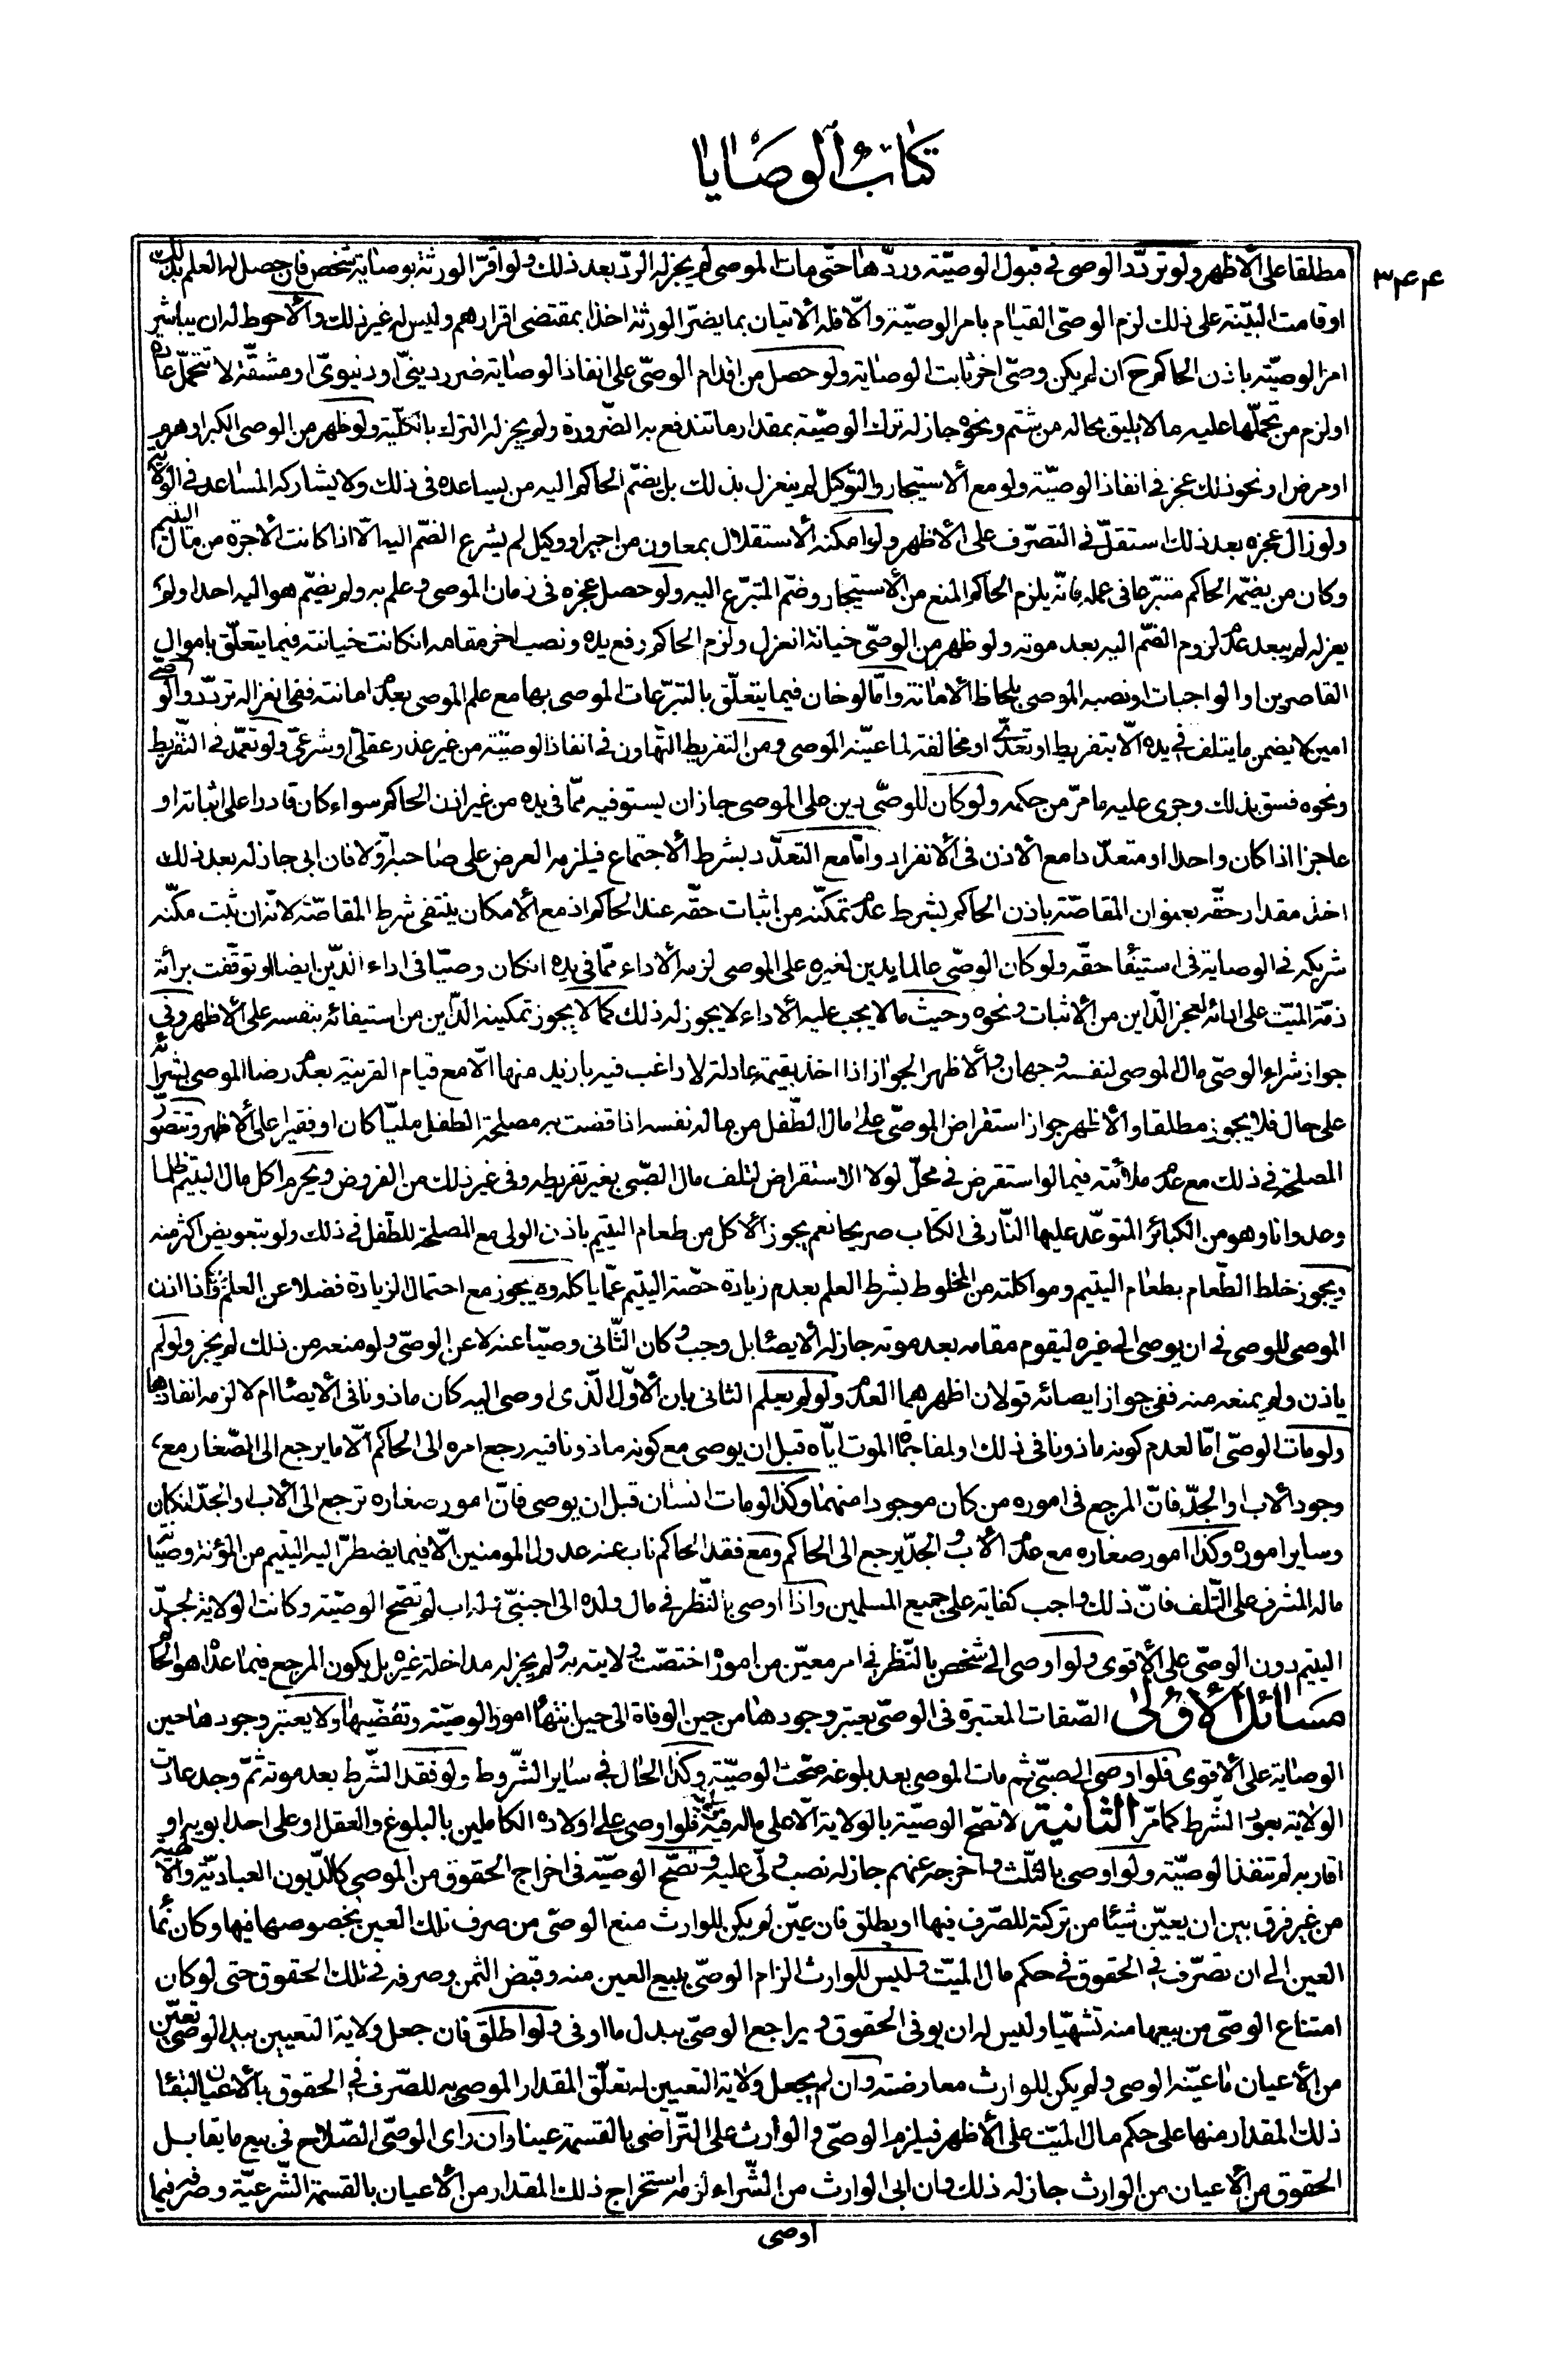 كتاب الوصايا
٣٤٤
مطلقا على الأظهر ولو تردّد الوصى في قبول الوصيّة وردّها حتّى مات الموصى لم يجز له الردّ بعد ذلك ولو اقرّ الورثة بوصاية شخص فان حصل له العلم بذلك
او قامت البيّنة على ذلك لزم الوصىّ القيام بامر الوصيّة والّا فله الأتيان بما يضرّ الورثة اخذا بمقتضى اقرارهم وليس له غير ذلك والأحوط له ان يباشر
امر الوصيّة باذن الحاكم ح ان لم يكن وصىّ اخر ثابت الوصاية ولو حصل من اقدام الوصىّ على انفاذ الوصاية ضرر دينىّ او دنيوىّ او مشقّة لا تتحمّل عادة
او لزم من تحمّلها عليه ما لا يليق بحاله من شتم ونحوه جاز له ترك الوصيّة بمقدار ما تندفع به الضّرورة ولم يجز له الترك بالكلّية ولو ظهر من الوصى الكبر او هرم
او مرض او نحو ذلك عجز في انفاذ الوصيّة ولو مع الأستيجار والتوكيل لم ينعزل بذلك بل يضمّ الحاكم اليه من يساعده فى ذلك ولا يشاركه المساعد فى الولاية
ولو زال عجزه بعد ذلك استقلّ فى التصرّف على الأظهر ولو امكنه الأستقلال بمعاون من اجير او وكيل لم يشرع الضّم اليه الّا اذا كانت الأجرة من مال اليتيم
وكان من يضمّه الحاكم متبرّعا فى عمله فانّه يلزم الحاكم المنع من الأستيجار وضمّ المتبرّع اليه ولو حصل عجزه فى زمان الموصى وعلم به ولم يضمّ هو اليه احدا ولم
يعزله لم يبعد عدم لزوم الضّم اليه بعد موته ولو ظهر من الوصىّ خيانة انعزل ولزم الحاكم رفع يده ونصب اخر مقامه انكانت خيانته فيما يتعلّق باموال
القاصرين او الواجبات او نصبه الموصى بلحاظ الأمانة وامّا لو خان فيما يتعلّق بالتبرّعات الموصى بها مع علم الموصى بعدم امانته ففى انعزاله تردّد والوصىّ
امين لا يضمن ما يتلف فى يده الّا بتفريط او تعدّى او مخالفة لما عيّنه الموصى ومن التفريط التّهاون فى انفاذ الوصيّة من غير عذر عقلىّ او شرعىّ ولو تعمّد فى التّفريط
ونحوه فسق بذلك وجرى عليه ما مرّ من حكمه ولو كان للوصىّ دين على الموصى جاز ان يستوفيه ممّا فى يده من غير اذن الحاكم سواء كان قادرا على اثباته او
عاجزا اذا كان واحدا او متعدّدا مع الاذن فى الأنفراد وامّا مع التعدّد بشرط الأجتماع فيلزمه العرض على صاحبه اوّلا فان ابى جاز له بعد ذلك
اخذ مقدار حقّه بعنوان المقاصّة باذن الحاكم بشرط عدم تمكّنه من اثبات حقّه عند الحاكم اذ مع الأمكان ينتفى شرط المقاصّة لانّه ان ثبت مكّنه
شريكه فى الوصاية فى استيفاء حقّه ولو كان الوصىّ عالما بدين لغيره على الموصى لزمه الأداء ممّا فى يده انكان وصيّا فى اداء الدّين ايضا او توقّفت برائة
ذمّة الميّت على ادائه لعجز الدّاين من الأثبات ونحوه وحيث ما لا يجب عليه الأداء لا يجوز له ذلك كما لا يجوز تمكينه الدّاين من استيفائه بنفسه على الأظهر وفى
جواز شراء الوصىّ مال الموصى لنفسه وجهان والأظهر الجواز اذا اخذ بقيمة عادلة لا راغب فيه بازيد منها الّا مع قيام القرينة بعدم رضا الموصى بشرائه
على حال فلا يجوز مطلقا والأظهر جواز استقراض الموصىّ على مال الطّفل من ماله نفسه اذا قضت به مصلحة الطفل مليّا كان او فقيرا على الأظهر وتتصوّر
المصلحة فى ذلك مع عدم ملائته فيما لو استقرض فى محلّ لولا الاستقراض لتلف مال الصّبى بغير تفريطه وفى غير ذلك من الفروض ويحرم اكل مال اليتيم ظلما
وعدوانا وهو من الكبائر المتوعّد عليها النّار فى الكتاب صريحا نعم يجوز الأكل من طعام اليتيم باذن الولى مع المصلحة للطّفل فى ذلك ولو بتعويض اكثر منه
ويجوز خلط الطّعام بطعام اليتيم ومواكلته من المخلوط بشرط العلم بعدم زيادة حصّة اليتيم عمّا ياكله ويجوز مع احتمال الزيادة فضلا عن العلم وكذا اذن
الموصى للوصى فى ان يوصى الى غيره ليقوم مقامه بعد موته جاز له الأيصاء بل وجب وكان الثّانى وصيّا عنه لا عن الوصىّ ولو منعه من ذلك لم يجز ولو لم
ياذن ولم يمنعه منه ففى جواز ايصائه قولان اظهرهما العدم ولو لم يعلم الثانى بان الأوّل الّذى اوصى اليه كان ماذونا فى الأيصاء ام لا لزمه انفاذها
ولو مات الوصىّ امّا لعدم كونه ماذونا فى ذلك او لمفاجاة الموت ايّاه قبل ان يوصى مع كونه ماذونا فيه رجع امره الى الحاكم الّا ما يرجع الى الصّغار مع
وجود الاب او الجدّ فانّ المرجع فى اموره من كان موجودا منهما وكذا لو مات انسان قبل ان يوصى فانّ امور صغاره ترجع الى الأب او الجدّ انكان
وساير اموره وكذا امور صغاره مع عدم الأب والجدّ يرجع الى الحاكم ومع فقد الحاكم ناب عنه عدول المومنين الّا فيما يضطرّ اليه اليتيم من المؤنة وصيانة
ماله المشرف على التّلف فانّ ذلك واجب كفاية على جميع المسلمين واذا اوصى بالنّظر فى مال ولده الى اجنبىّ وله اب لم تصّح الوصيّة وكانت الولاية لجدّ
اليتيم دون الوصىّ على الأقوى ولو اوصى الى شخص بالنّظر فى امر معيّن من اموره اختصّت ولايته به ولم يجز له مداخلة غيره بل يكون المرجع فيما عداه هو الحاكم
مسائل الأولى الصّفات المعتبرة فى الوصىّ يعتبر وجودها من حين الوفاة الى حين انتهاء امور الوصيّة وتقضّيها ولا يعتبر وجودها حين
الوصاية على الأقوى فلو اوصى الى صبىّ ثم مات الموصى بعد بلوغه صحّت الوصيّة وكذا الحال فى ساير الشّروط ولو فقد الشّرط بعد موته ثمّ وجد عادت
الولاية بعود الشّرط كما مرّ الثانية لا تصّح الوصيّة بالولاية الّا على ماله فيه فلو اوصى على اولاده الكاملين بالبلوغ والعقل او على احد ابويه او
اقاربه لم تنفذ الوصيّة ولو اوصى بالثلث واخرجه عنهم جاز له نصب ولّى عليه وتصّح الوصيّة فى اخراج الحقوق من الموصى كالدّيون العباديّة والا
من غير فرق بين ان يعيّن شيئا من تركته للصّرف فيها او يطلق فان عيّن لم يكن للوارث منع الوصىّ من صرف تلك العين بخصوصها فيها وكان نماء
العين الى ان تصرّف فى الحقوق فى حكم مال الميّت وليس للوارث الزام الوصىّ ببيع العين منه وقبض الثمن وصرفه فى تلك الحقوق حتى لو كان
امتناع الوصىّ من بيعها منه تشهّيا وليس له ان يوفى الحقوق ويراجع الوصىّ ببدل ما اوفى ولو اطلق فان جعل ولاية التعيين بيد الوصىّ تعيّن
من الأعيان ما عيّنه الوصى ولم يكن للوارث معارضته وان لم يجعل ولاية التعيين له تعلّق المقدار الموصى به للصّرف فى الحقوق بالأعيان لبقاء
ذلك المقدار منها على حكم مال الميّت على الأظهر فيلزم الوصىّ والوارث على التّراضى بالقسمة عينا وان راى الوصىّ الصّلاح فى بيع ما يقابل
الحقوق من الأعيان من الوارث جاز له ذلك وان ابى الوارث من الشّراء لزمه استخراج ذلك المقدار من الأعيان بالقسمة الشّرعيّة وصرفه فيما
اوصى